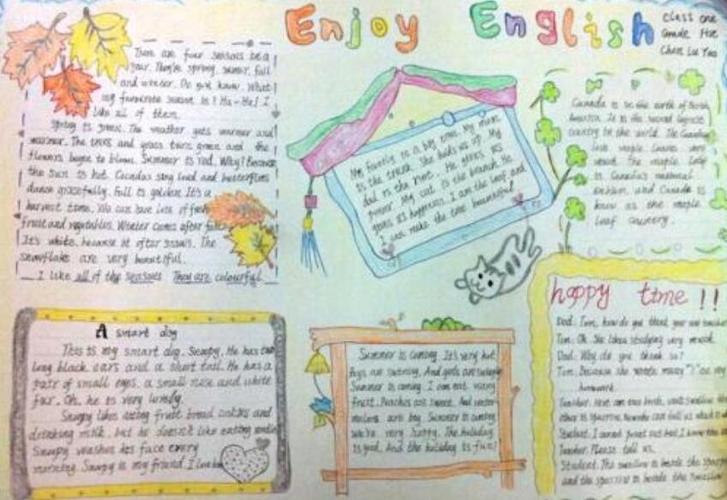 Enjoy English
Class one
Grade Five
Chen Lu Yao
There are four seasons be a
year. They're spring, summer, fall
and winter. Do you know What
my favourite season is? Ha-Ha! I
like all of them.
Spring is green. The weather gets warmer and
warmer. The trees and grass turns green and the
flowers begin to bloom. Summer is red. Why? Because
the sun is hot. Cicadas sing loud and butterflies
dance gracefully. Fall is golden. It's a
harvest time. We can have lots of fresh
fruit and vegetables. Winter comes after fall.
It's white, because it often snows. The
snowflake are very beautiful.
I like all of the seasons They are colourful.
My family is a big tree. My mum
is the trunk. She holds us up. My
dad is the root. He gives us
power. My cat is the branch. He
gives us happiness. I am the leaf and
can make the tree beautiful
Canada is in the north of North
America. It is the second largest
country in the world. The Canadian
love maple leaves very
much the maple leaf
is Canada's national
emblem and Canada is
know as the maple
leaf country.
A smart dog
This is my smart dog, Snoopy. He has two
long black ears and a short tail. He has a
pair of small eyes, a small nose and white
fur. Oh, he is very lovely.
Snoopy likes eating fruit bread cookies and
drinking milk, but he doesn't like eating
Snoopy washes his face every
morning. Snoopy is my friend. I love him
Summer is coming. It's very hot
Boys are swimming. And girls are
Summer is coming. I can eat many
fruit. Peaches are sweet. And water-
melons are big. Summer is coming
we're very happy. The holiday
is good. And the holiday is fun!
happy time !!
Dad: Tom, how do you think your new
Tom: Oh. She likes studying very much.
Dad: Why do you think so?
Tom: Because she writes many "x" on my
homework.
Teacher: Here are two birds, one's swallow
other is sparrow. Now who can tell us which
Student: I cannot point out but I know the
Teacher: Please tell us.
Student: The swallow is beside the sparrow
and the sparrow is beside the swallow